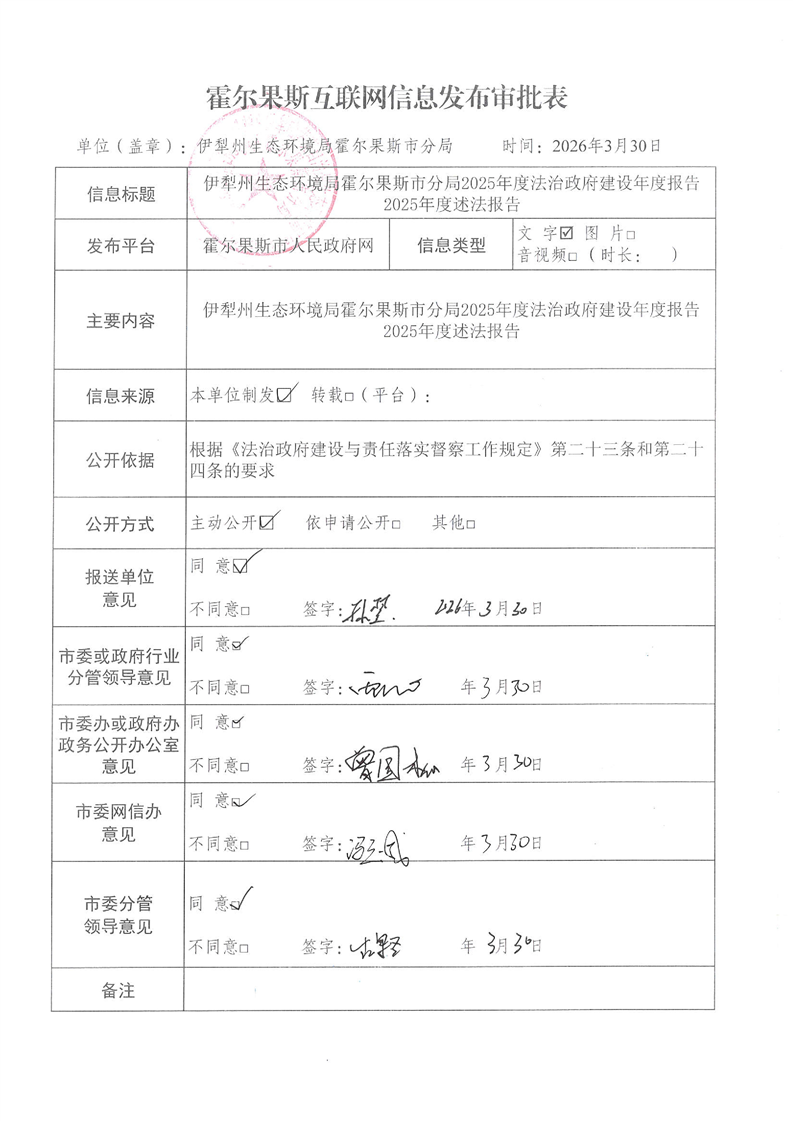 霍尔果斯互联网信息发布审批表
单位（盖章）：伊犁州生态环境局霍尔果斯市分局 时间：2026年3月30日
信息标题 伊犁州生态环境局霍尔果斯市分局2025年度法治政府建设年度报告
2025年度述法报告
发布平台 霍尔果斯市人民政府网 信息类型 文 字☑ 图 片□
音视频□（时长： ）
主要内容 伊犁州生态环境局霍尔果斯市分局2025年度法治政府建设年度报告
2025年度述法报告
信息来源 本单位制发☑ 转载□（平台）：
公开依据 根据《法治政府建设与责任落实督察工作规定》第二十三条和第二十
四条的要求
公开方式 主动公开☑ 依申请公开□ 其他□
报送单位
意见
同 意☑
不同意□ 签字： 2026年3月30日
市委或政府行业
分管领导意见
同 意☑
不同意□ 签字： 年3月30日
市委办或政府办
政务公开办公室
意见
同 意☑
不同意□ 签字： 年3月30日
市委网信办
意见
同 意☑
不同意□ 签字： 年3月30日
市委分管
领导意见
同 意☑
不同意□ 签字： 年3月30日
备注